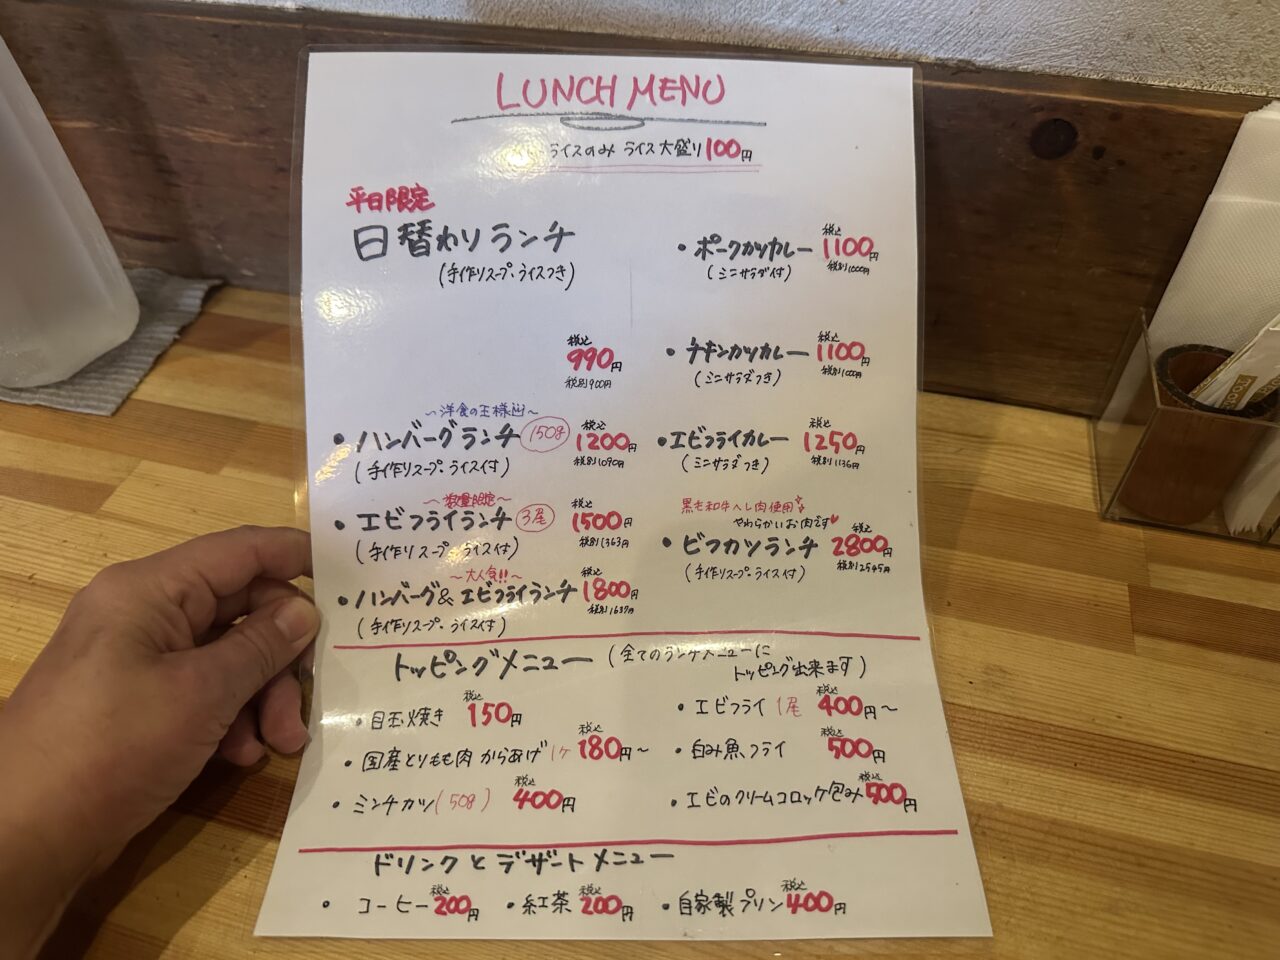 LUNCH MENU
ライスのみ ライス大盛り100円
平日限定
日替わりランチ
(手作りスープ・ライスつき)
税込
990円
税別900円
〜洋食の王様〜
・ハンバーグランチ 150g 税込 1200円
(手作りスープ・ライス付) 税別1090円
〜数量限定〜
・エビフライランチ 3尾 税込 1500円
(手作りスープ・ライス付) 税別1363円
〜大人気!!〜
・ハンバーグ&エビフライランチ 税込 1800円
(手作りスープ・ライス付) 税別1637円
・ポークカツカレー 税込 1100円
(ミニサラダ付) 税別1000円
・チキンカツカレー 税込 1100円
(ミニサラダつき) 税別1000円
・エビフライカレー 税込 1250円
(ミニサラダつき) 税別1136円
黒毛和牛ヘレ肉使用
やわらかいお肉です♥
・ビフカツランチ 税込 2800円
(手作りスープ・ライス付) 税別2545円
トッピングメニュー (全てのランチメニューに
トッピング出来ます)
・目玉焼き 税込 150円
・国産とりもも肉 からあげ 1ケ 税込 180円〜
・ミンチカツ(50g) 税込 400円
・エビフライ 1尾 税込 400円〜
・白み魚フライ 税込 500円
・エビのクリームコロッケ包み 税込 500円
ドリンクとデザートメニュー
・コーヒー 税込 200円 ・紅茶 税込 200円 ・自家製プリン 税込 400円